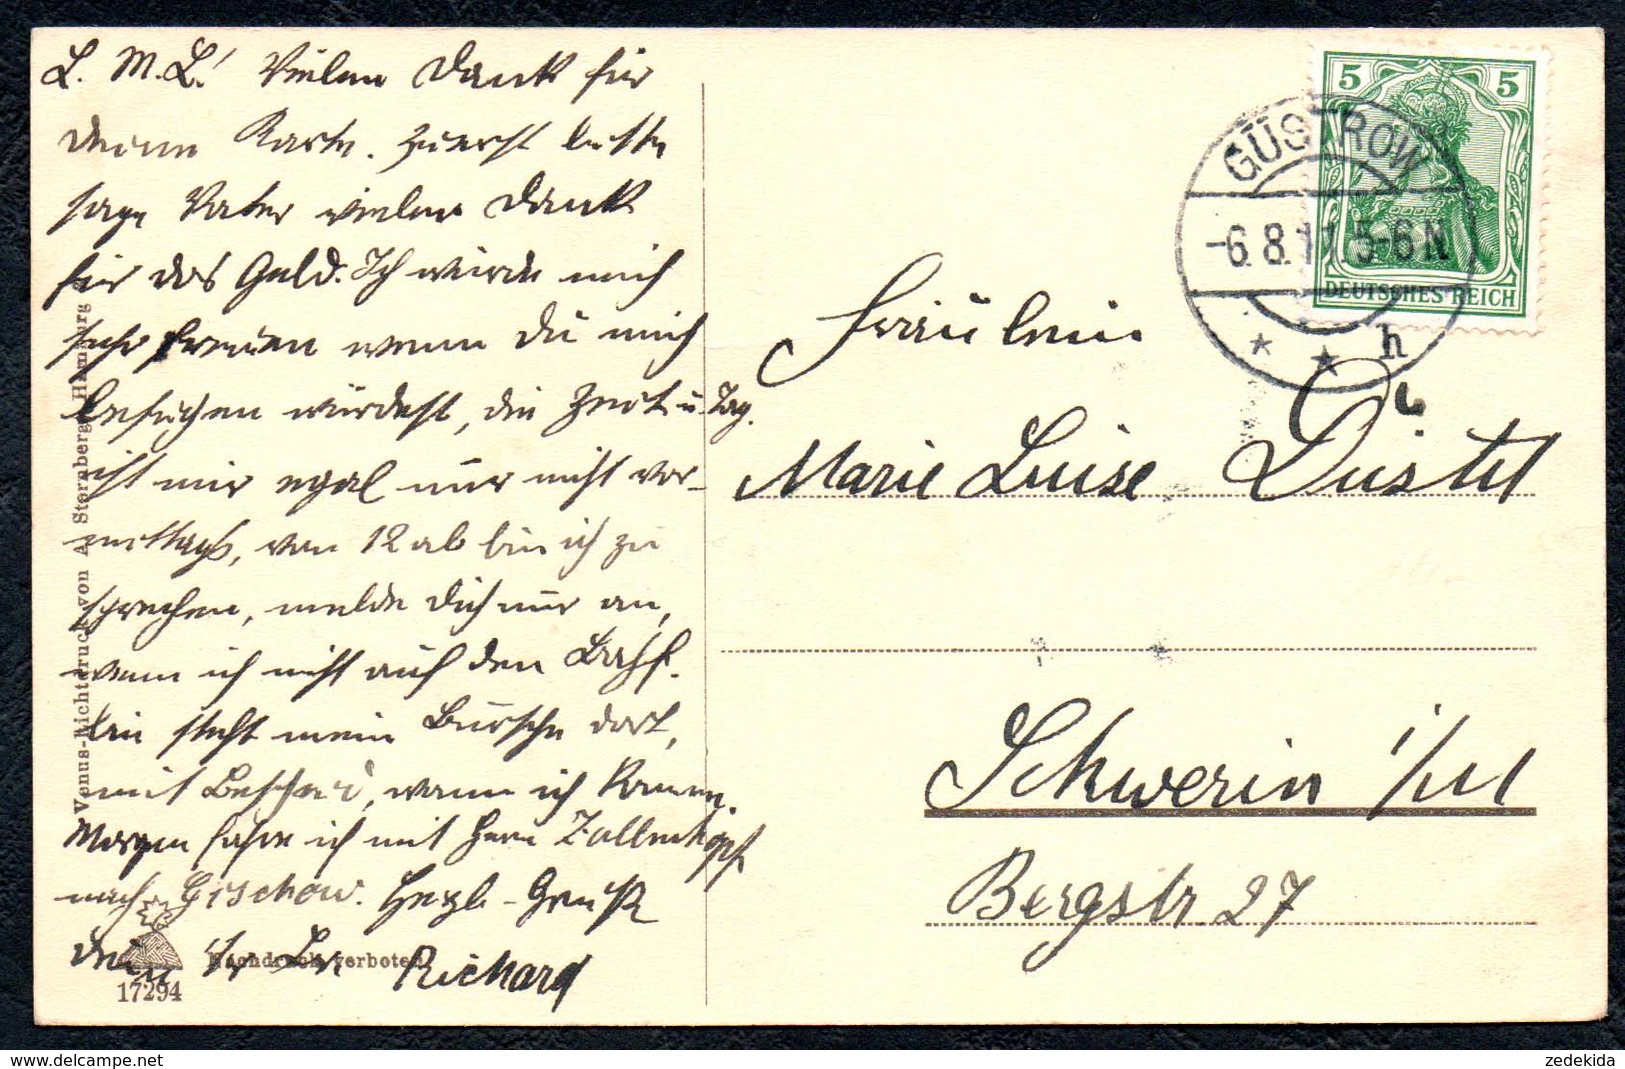 L. M. L.! Vielen Dank für
Deine Karte. Zuerst bitte
sage Vater vielen Dank
für das Geld. Ich würde mich
sehr freuen wenn Du mich
besuchen würdest, die Zeit u. Tag.
ist mir egal nur nicht vor-
mittags, von 12 ab bin ich zu
sprechen, melde Dich nur an,
wenn ich nicht auf den Bahhf.
bin steht mein Bursche dort,
mit Bescheid, wann ich komme.
Morgen fahre ich mit Herrn
nach Gischow. Herzl. Gruß
Dein Br. Richard
Venus-Lichtdruck von A. Sternberg, Hamburg
Nachdruck verboten
17294
5 5
DEUTSCHES REICH
GÜSTROW
-6.8.11.5-6N
* * h
Fräulein
Marie Luise Düstel
Schwerin i/M
Bergstr. 27
zedekida